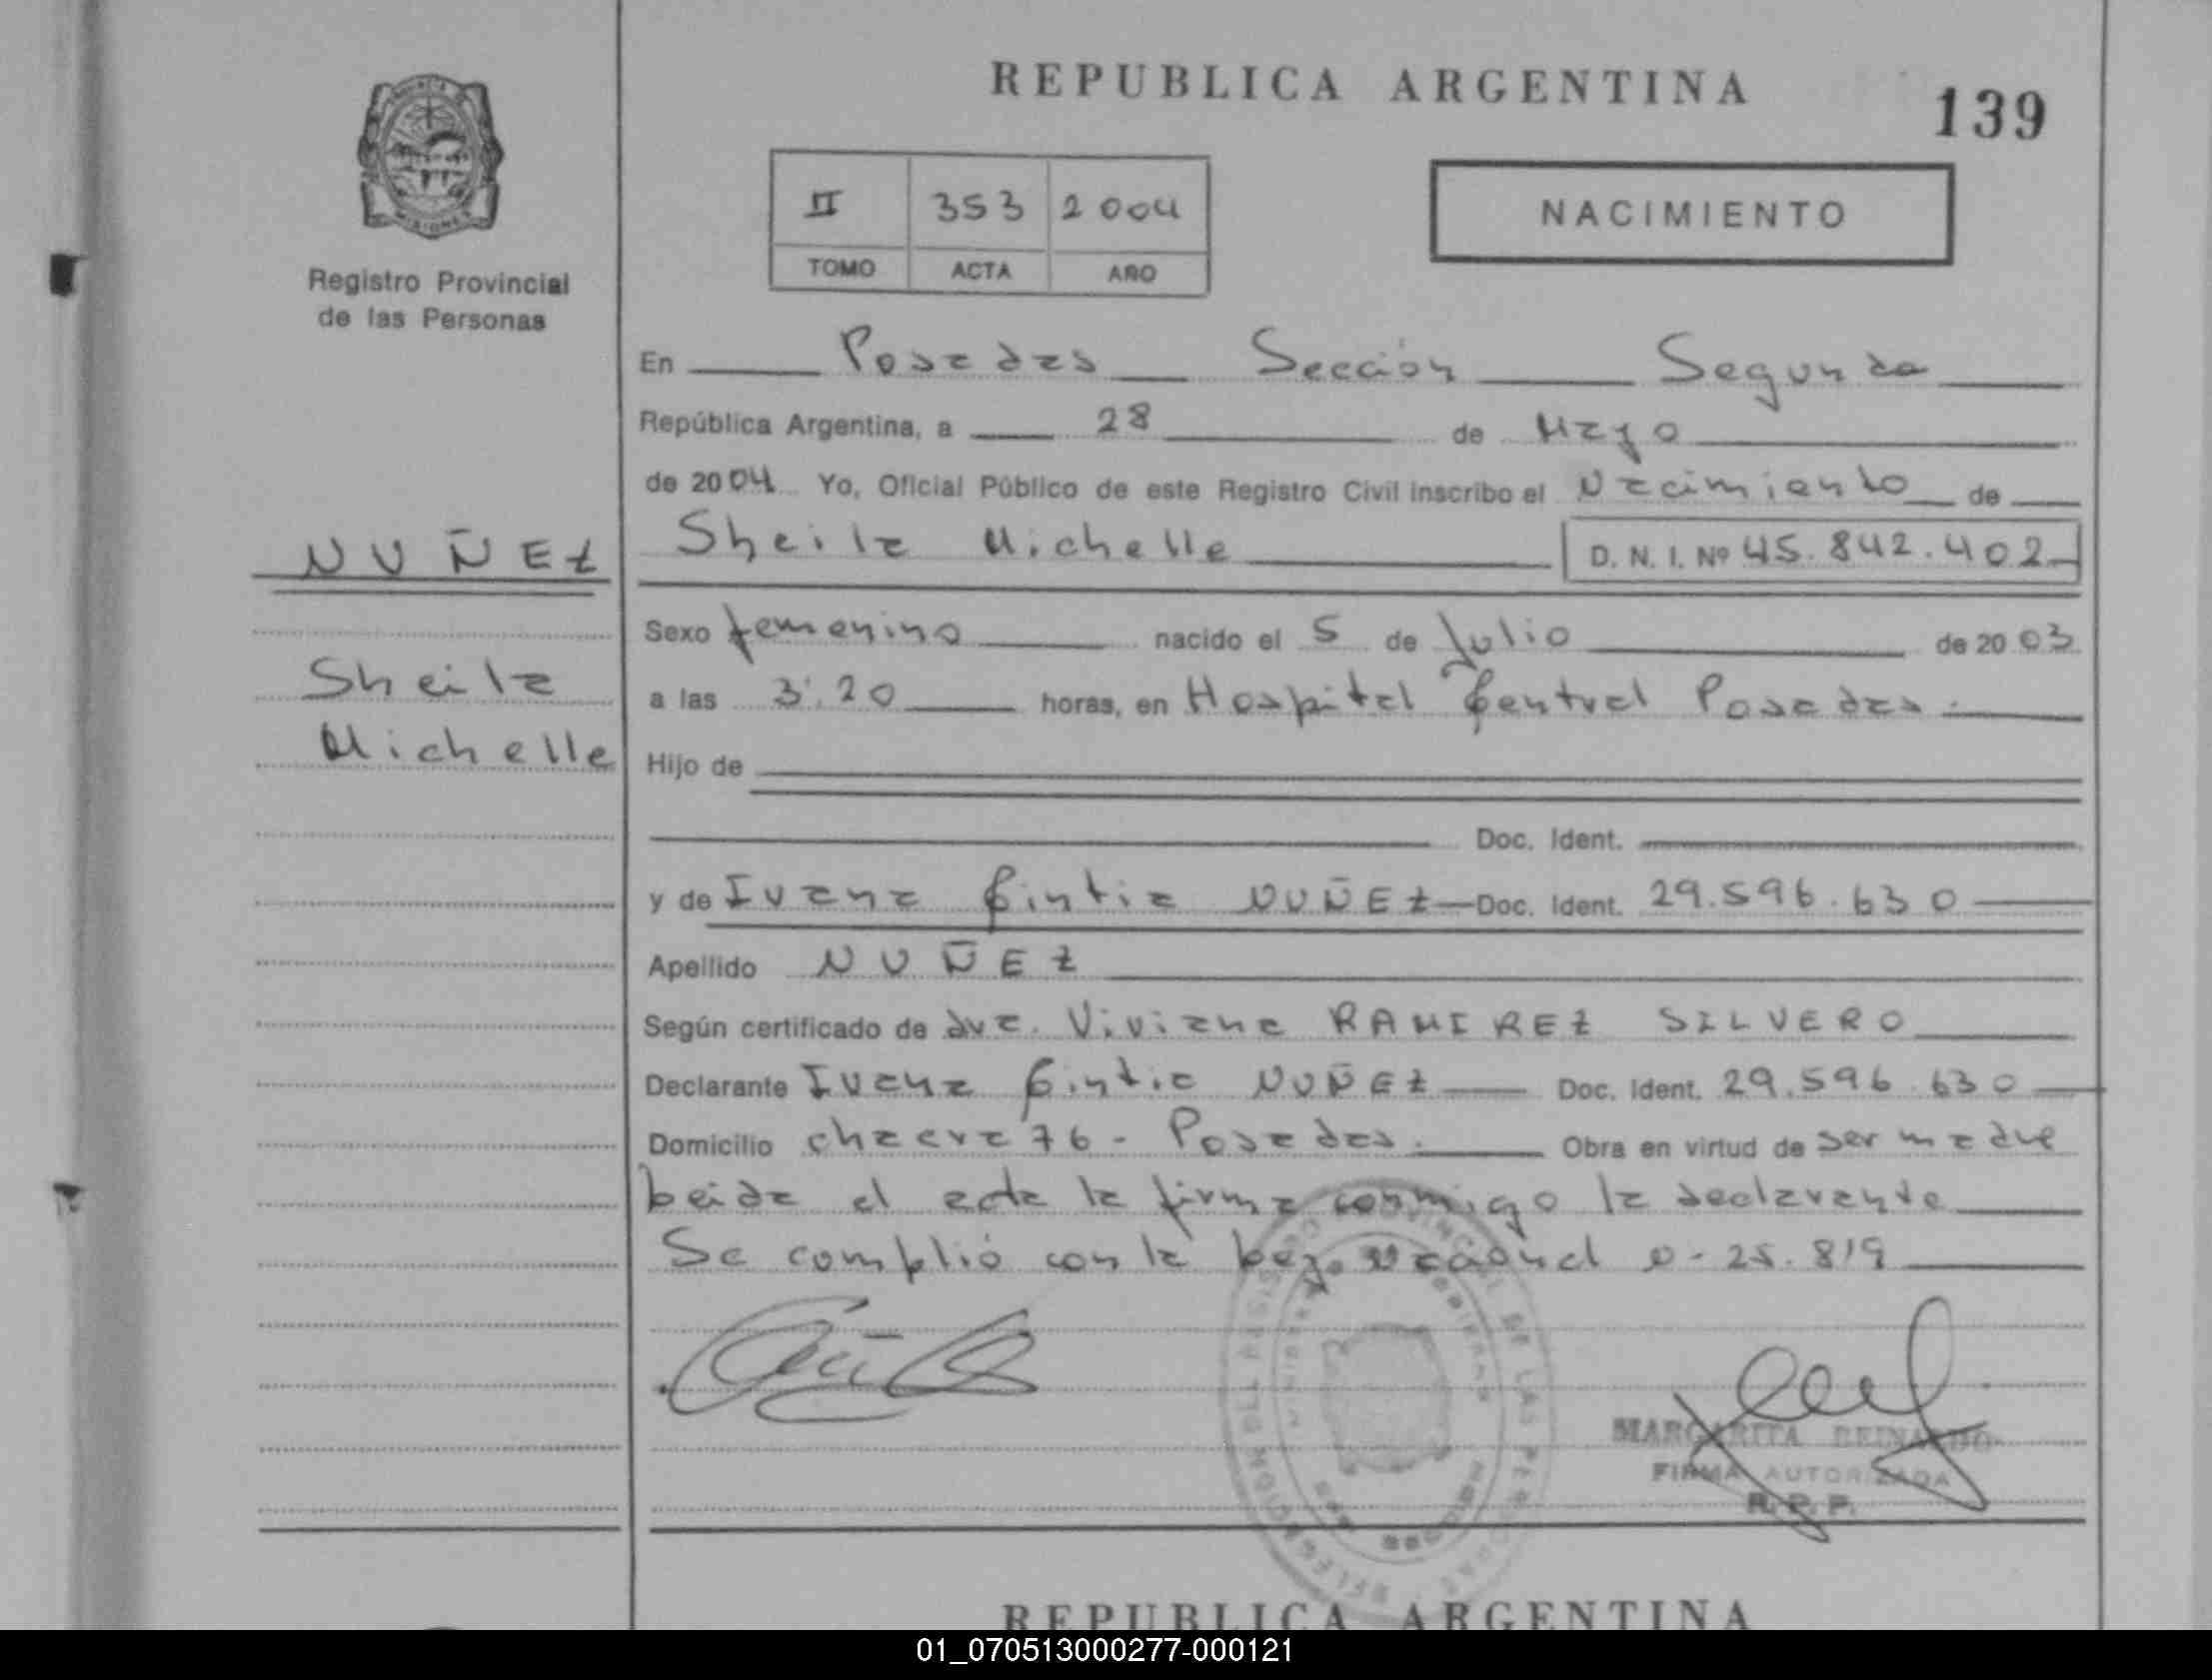 REPUBLICA ARGENTINA
139
II 353 2004
TOMO ACTA AÑO
NACIMIENTO
MISIONES
Registro Provincial
de las Personas
En Posadas Sección Segunda
República Argentina, a 28 de Mayo
de 2004 Yo, Oficial Público de este Registro Civil inscribo el Nacimiento de
NUÑEZ
Sheila Michelle D. N. I. Nº 45.842.402
Sexo femenino nacido el 5 de Julio de 2003
Sheila
a las 3:20 horas, en Hospital Central Posadas.
Michelle
Hijo de
Doc. Ident.
y de Ivana Cintia NUÑEZ Doc. Ident. 29.596.630
Apellido NUÑEZ
Según certificado de dra. Viviana RAMIREZ SILVERO
Declarante Ivana Cintia NUÑEZ Doc. Ident. 29.596.630
Domicilio chacra 76 - Posadas. Obra en virtud de ser madre
Leida el acta la firma conmigo la declarante
Se complió con la Ley Nacional 25.819
MARGARITA REINALDO
FIRMA AUTORIZADA
R. P. P.
REPUBLICA ARGENTINA
01_070513000277-000121